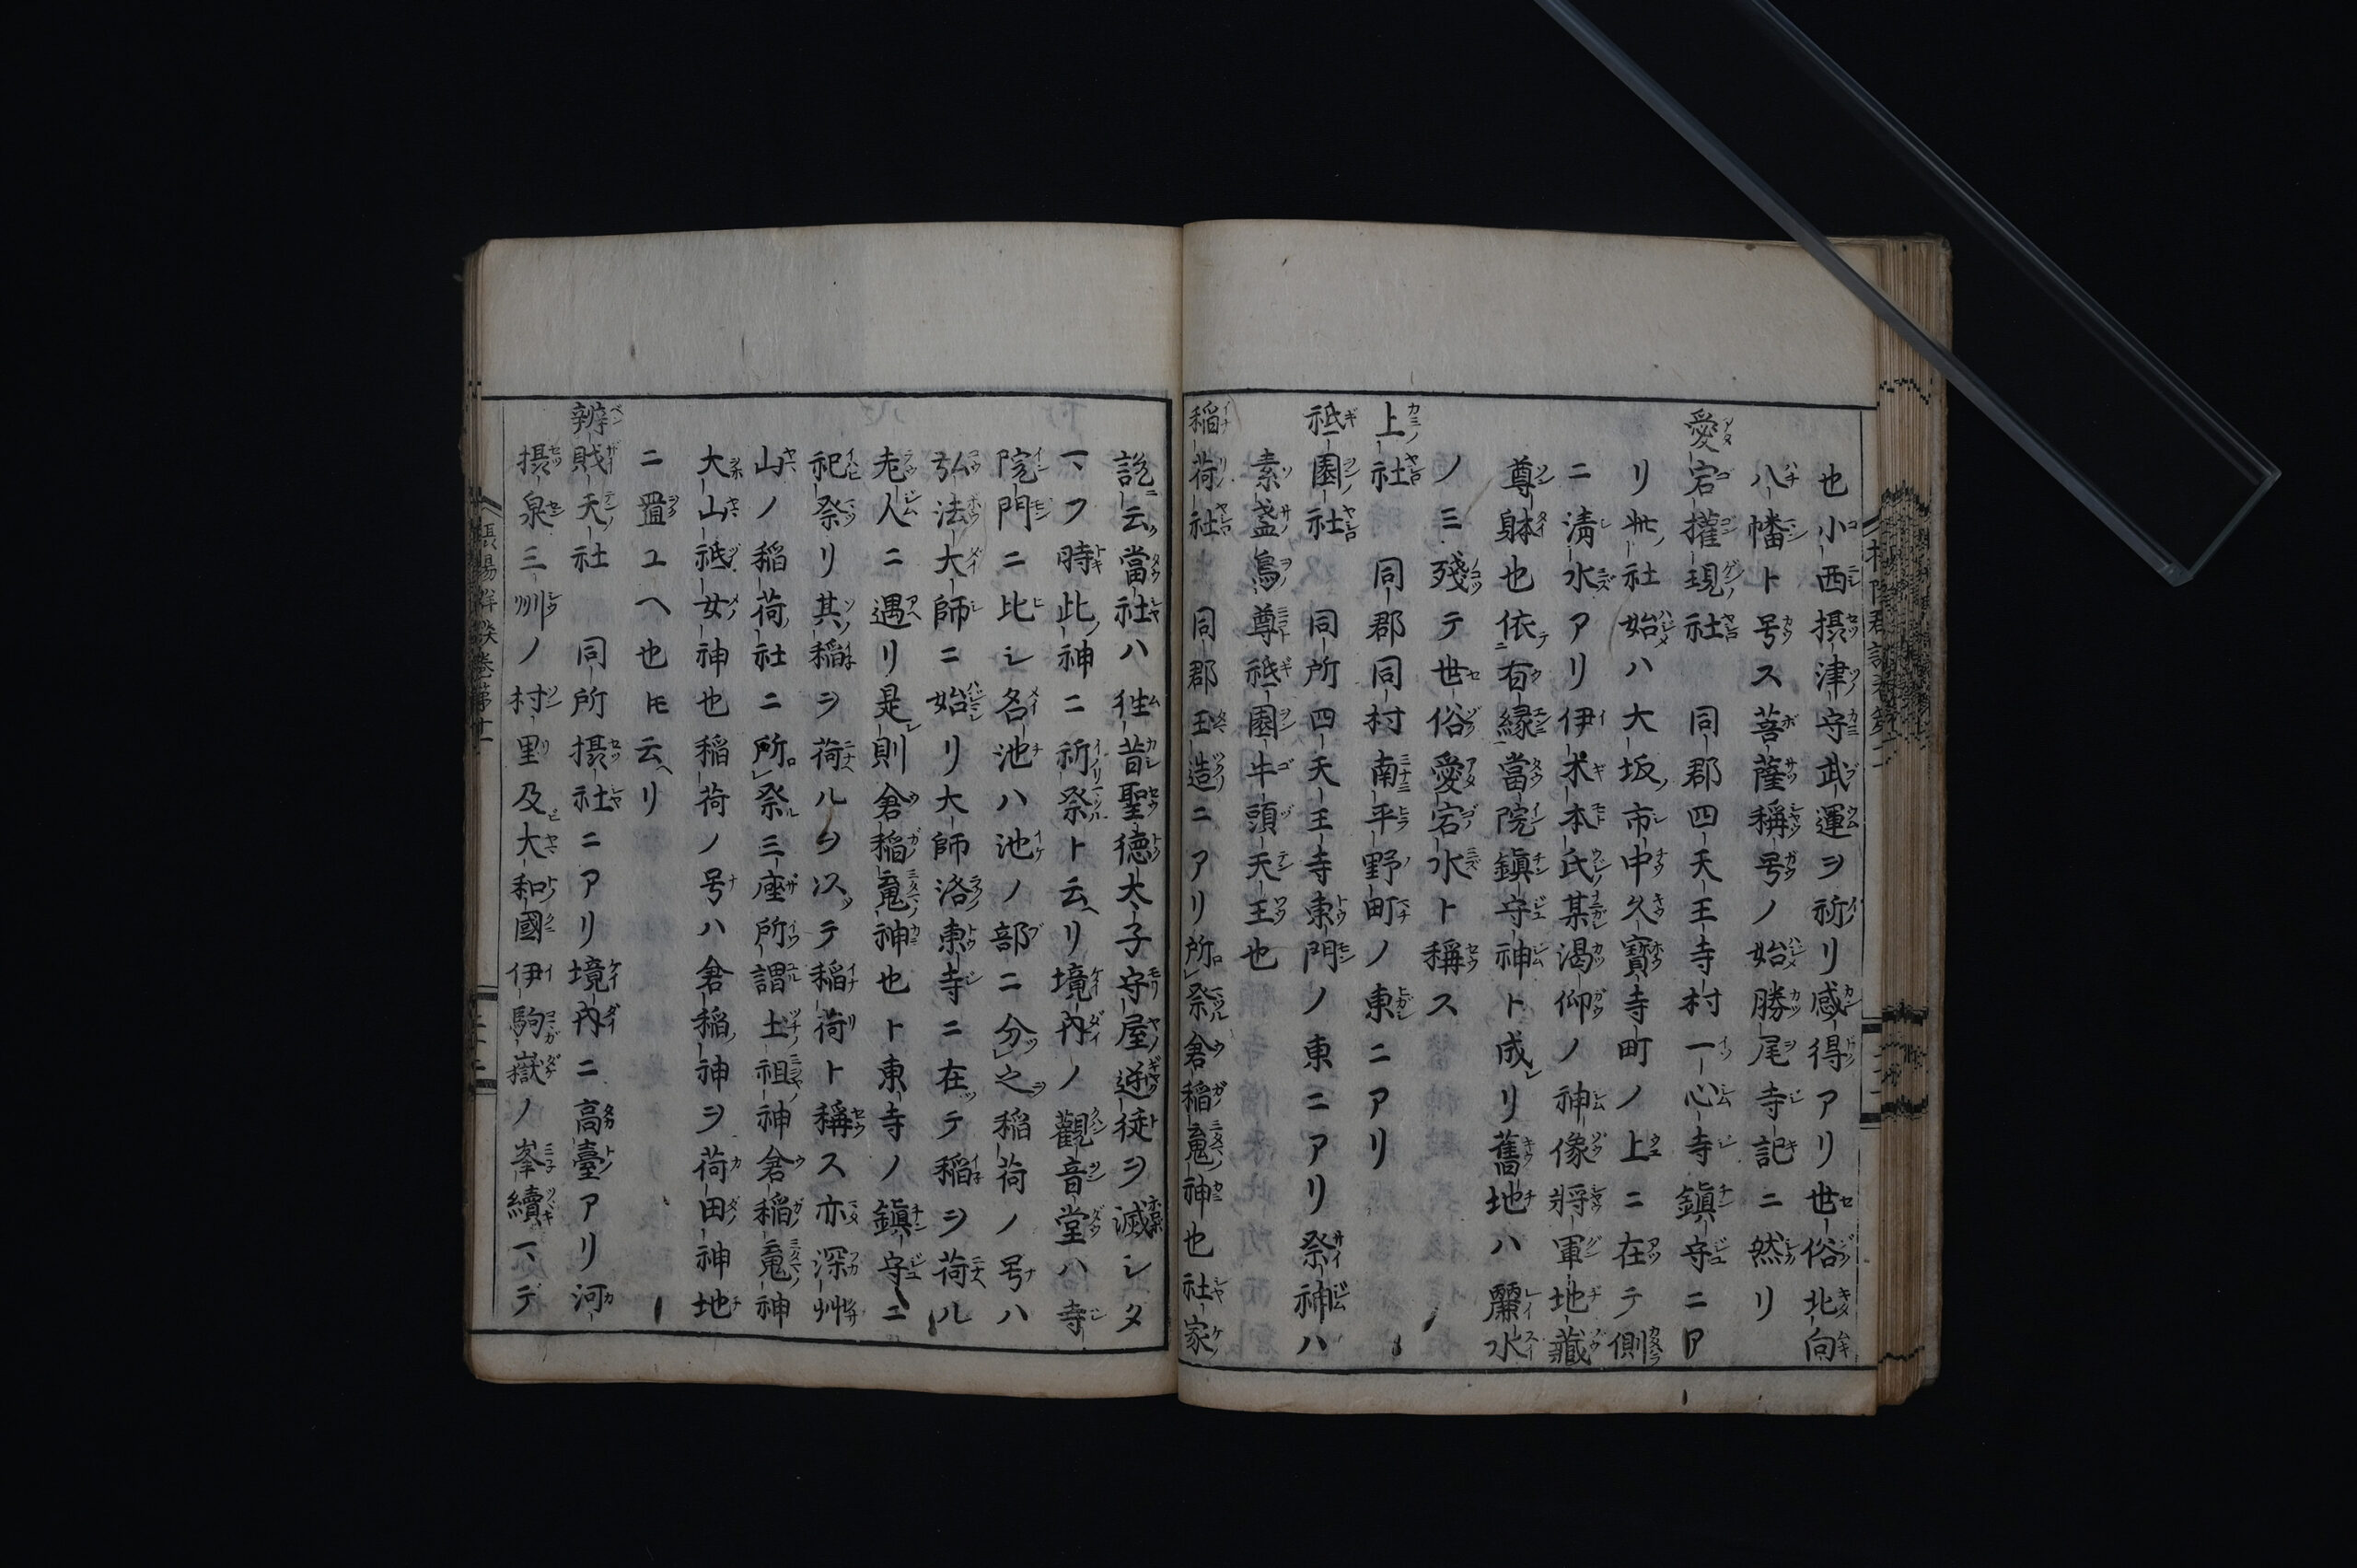 也小西摂津守武運ヲ祈リ感得アリ世俗北向
八幡ト号ス菩薩稱号ノ始勝尾寺記ニ然リ
愛宕權現社 同郡四天王寺村一心寺鎮守ニア
リ此社始ハ大坂市中久寳寺町ノ上ニ在テ側
ニ清水アリ伊木本氏某渇仰ノ神像将軍地蔵
尊躰也依有縁當院鎮守神ト成リ舊地ハ麗水
ノミ殘テ世俗愛宕水ト稱ス
上社 同郡同村南平野町ノ東ニアリ
祗園社 同所四天王寺東門ノ東ニアリ祭神ハ
素盞烏尊祗園牛頭天王也
稲荷社 同郡玉造ニアリ所祭倉稲䰟神也社家
説云當社ハ徃昔聖徳太子守屋逆徒ヲ滅シタ
マフ時此神ニ祈祭ト云ヘリ境内ノ觀音堂ハ寺
院門ニ比シ名池ハ池ノ部ニ分之稲荷ノ号ハ
弘法大師ニ始リ大師洛東寺ニ在テ稲ヲ荷ル
老人ニ遇リ是則倉稲䰟神也ト東寺ノ鎮守ニ
祀祭リ其稲ヲ荷ルヲ以テ稲荷ト稱ス亦深艸
山ノ稲荷社ニ所祭三座所謂土祖神倉稲䰟神
大山祗女神也稲荷ノ号ハ倉稲神ヲ荷田神地
ニ置ユヘ也𪜈云ヘリ
辨財天社 同所摂社ニアリ境内ニ高臺アリ河
摂泉三州ノ村里及大和國伊駒嶽ノ峯續マデ
摂陽群談巻第十一